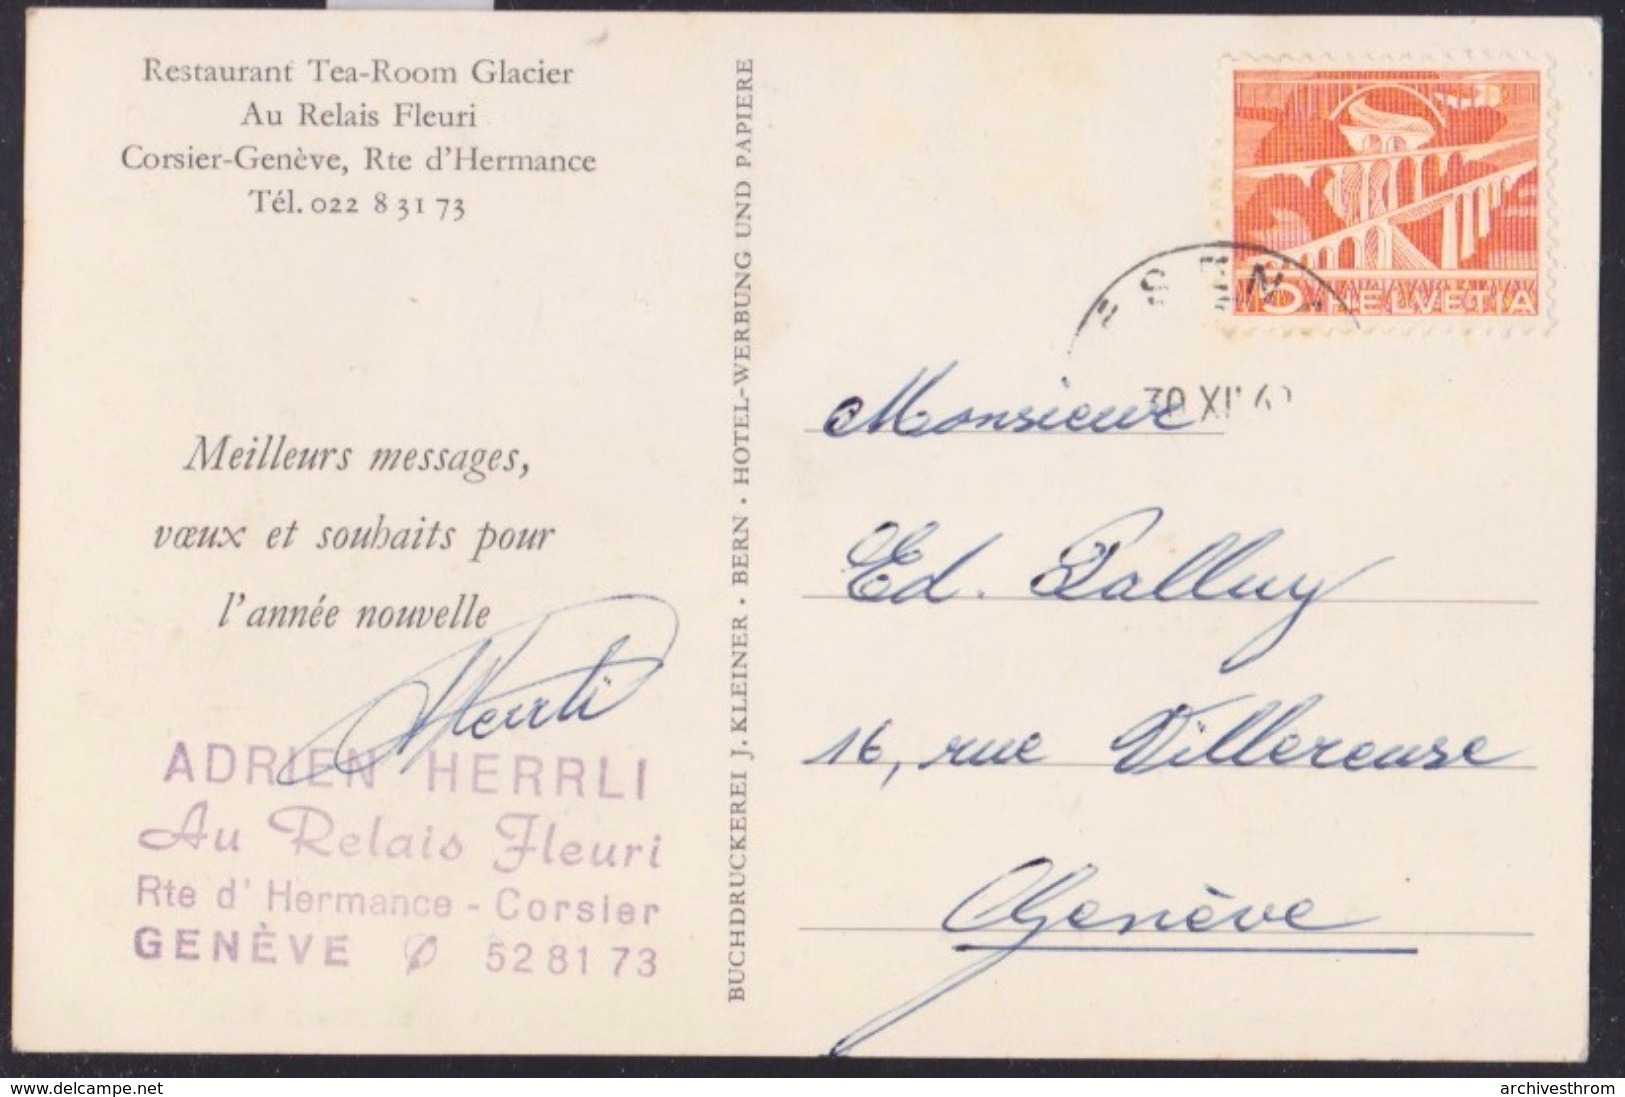 Restaurant Tea-Room Glacier
Au Relais Fleuri
Corsier-Genève, Rte d'Hermance
Tél. 022 8 31 73
Meilleurs messages,
vœux et souhaits pour
l'année nouvelle
Herrli
ADRIEN HERRLI
Au Relais Fleuri
Rte d'Hermance - Corsier
GENÈVE 52 81 73
BUCHDRUCKEREI J. KLEINER · BERN · HOTEL-WERBUNG UND PAPIERE
5 HELVETIA
30 XII
Monsieur
Ed. Palluy
16, rue Villereuse
Genève
www.delcampe.net
archivesthrom